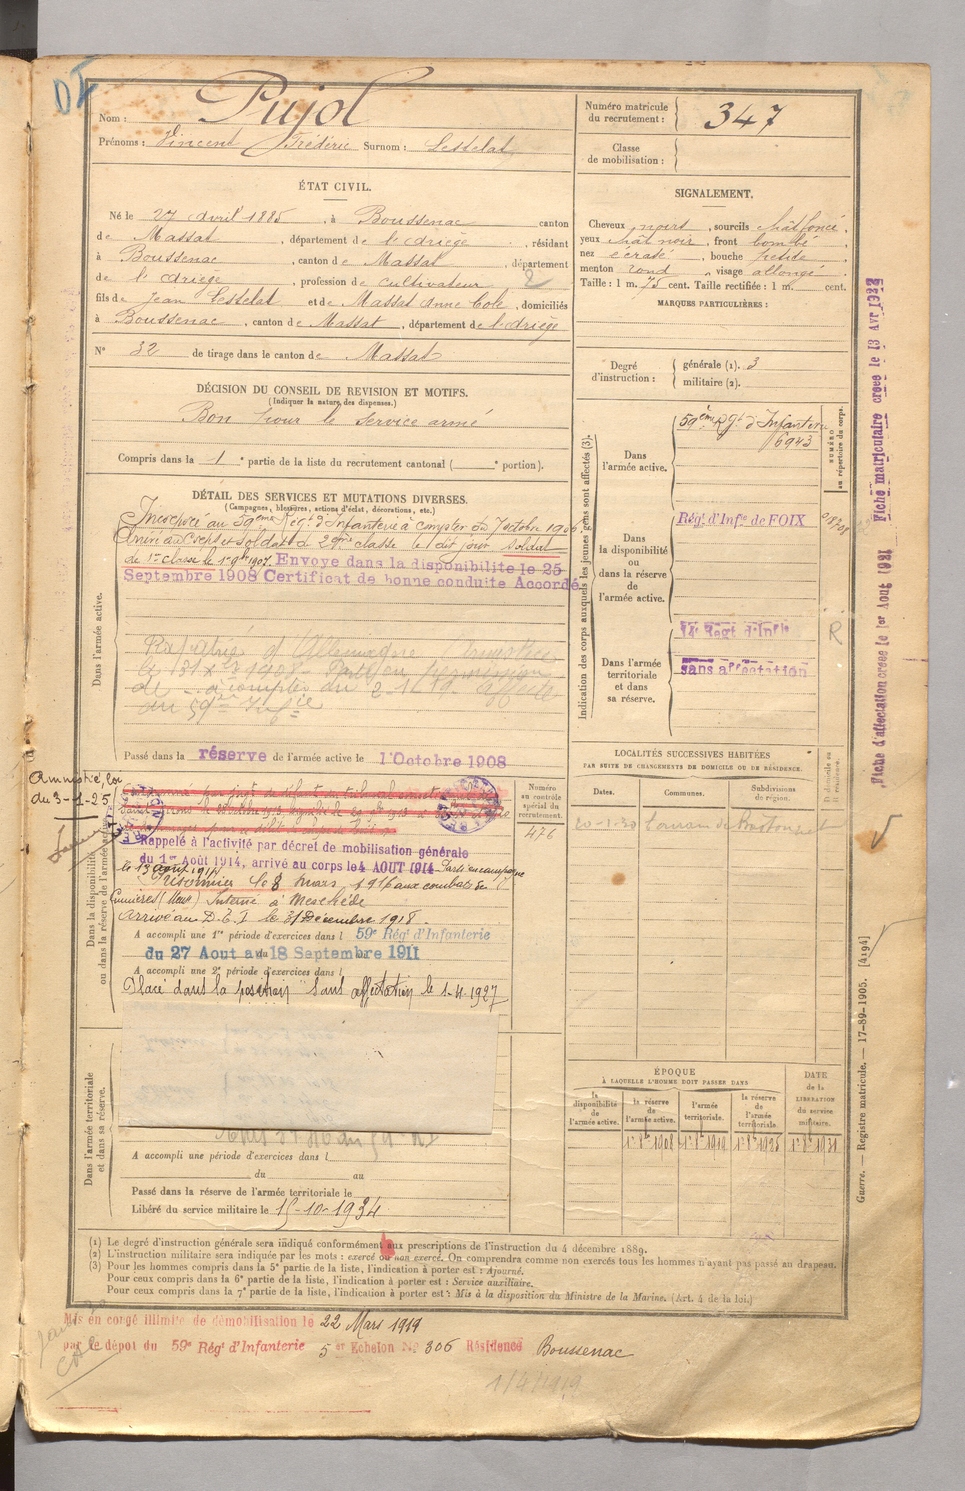 Nom : Pujol
Prénoms : Vincent Frédéric Surnom : Lestelat
ÉTAT CIVIL.
Né le 27 avril 1885, à Boussenac canton
de Massat, département de l'Ariège, résidant
à Boussenac, canton de Massat, département
de l'Ariège, profession de cultivateur 2
fils de Jean Lestelat et de Massat Anne Cole, domiciliés
à Boussenac, canton de Massat, département de l'Ariège
N° 32 de tirage dans le canton de Massat
DÉCISION DU CONSEIL DE REVISION ET MOTIFS.
(Indiquer la nature des dispenses.)
Bon pour le service armé
Compris dans la 1e partie de la liste du recrutement cantonal ( e portion).
DÉTAIL DES SERVICES ET MUTATIONS DIVERSES.
(Campagnes, blessures, actions d'éclat, décorations, etc.)
Dans l'armée active.
Incorporé au 59ème Régt d'Infanterie à compter du 7 octobre 1906
Arrivé au Corps et soldat de 2ème classe le dit jour soldat
de 1re classe le 1907. Envoye dans la disponibilite le 25
Septembre 1908 Certificat de bonne conduite Accordé
Rapatrié d'Allemagne
le 31 Xbre 1908
de à compter du affecté
au 59e Infie
Passé dans la réserve de l'armée active le 1 Octobre 1908
Amnistié, loi
du 3-1-25
Dans la disponibilité ou dans la réserve de l'armée active.
Rappelé à l'activité par décret de mobilisation générale
du 1er Août 1914, arrivé au corps le 4 AOUT 1914 Parti en campagne
le 13 août 1914
Prisonnier le 8 mars 1916 aux combats de
Cumières (Meuse) Interné à Meschède
Arrivé au D.E.I le 31 Décembre 1918.
A accompli une 1re période d'exercices dans l 59e Régt d'Infanterie
du 27 Aout au 18 Septembre 1911
A accompli une 2e période d'exercices dans l
Placé dans la position "sans affectation le 1-4-1927
Numéro au contrôle spécial du recrutement.
476
Dans l'armée territoriale et dans sa réserve.
A accompli une période d'exercices dans l
du au
Passé dans la réserve de l'armée territoriale le
Libéré du service militaire le 15-10-1934
Numéro matricule du recrutement : 347
Classe de mobilisation :
SIGNALEMENT.
Cheveux noirs, sourcils chât foncé,
yeux chât noir, front bombé,
nez écrasé, bouche petite,
menton rond, visage allongé.
Taille : 1 m. 73 cent. Taille rectifiée : 1 m. cent.
MARQUES PARTICULIÈRES :
Degré d'instruction :
générale (1). 3
militaire (2).
Indication des corps auxquels les jeunes gens sont affectés (3).
NUMÉRO au répertoire du corps.
Dans l'armée active.
59ème Rgt d'Infanterie
6943
Dans la disponibilité ou dans la réserve de l'armée active.
Régt d'Infie de FOIX
Dans l'armée territoriale et dans sa réserve.
Regt d'Infie
sans affectation
R
LOCALITÉS SUCCESSIVES HABITÉES
PAR SUITE DE CHANGEMENTS DE DOMICILE OU DE RÉSIDENCE.
Dates. Communes. Subdivisions de région. D domicile ou R résidence.
ÉPOQUE
À LAQUELLE L'HOMME DOIT PASSER DANS
la disponibilité de l'armée active. la réserve de l'armée active. l'armée territoriale. la réserve de l'armée territoriale. DATE de la LIBÉRATION du service militaire.
1r 8bre 1908 1r 8bre 1919 1r 8bre 1925 1r 8bre 1931
(1) Le degré d'instruction générale sera indiqué conformément aux prescriptions de l'instruction du 4 décembre 1889.
(2) L'instruction militaire sera indiquée par les mots : exercé ou non exercé. On comprendra comme non exercés tous les hommes n'ayant pas passé au drapeau.
(3) Pour les hommes compris dans la 5e partie de la liste, l'indication à porter est : Ajourné.
Pour ceux compris dans la 6e partie de la liste, l'indication à porter est : Service auxiliaire.
Pour ceux compris dans la 7e partie de la liste, l'indication à porter est : Mis à la disposition du Ministre de la Marine. (Art. 4 de la loi.)
Mis en congé illimité de démobilisation le 22 Mars 1919
par le dépôt du 59e Régt d'Infanterie 5 er Echelon N° 306 Résidence Boussenac
1/4/1919
Fiche d'affectation creee le 1er Aout 1921 Fiche matriculaire creee le 13 Avr
Guerre. — Registre matricule. — 17-89-1905. [4194]